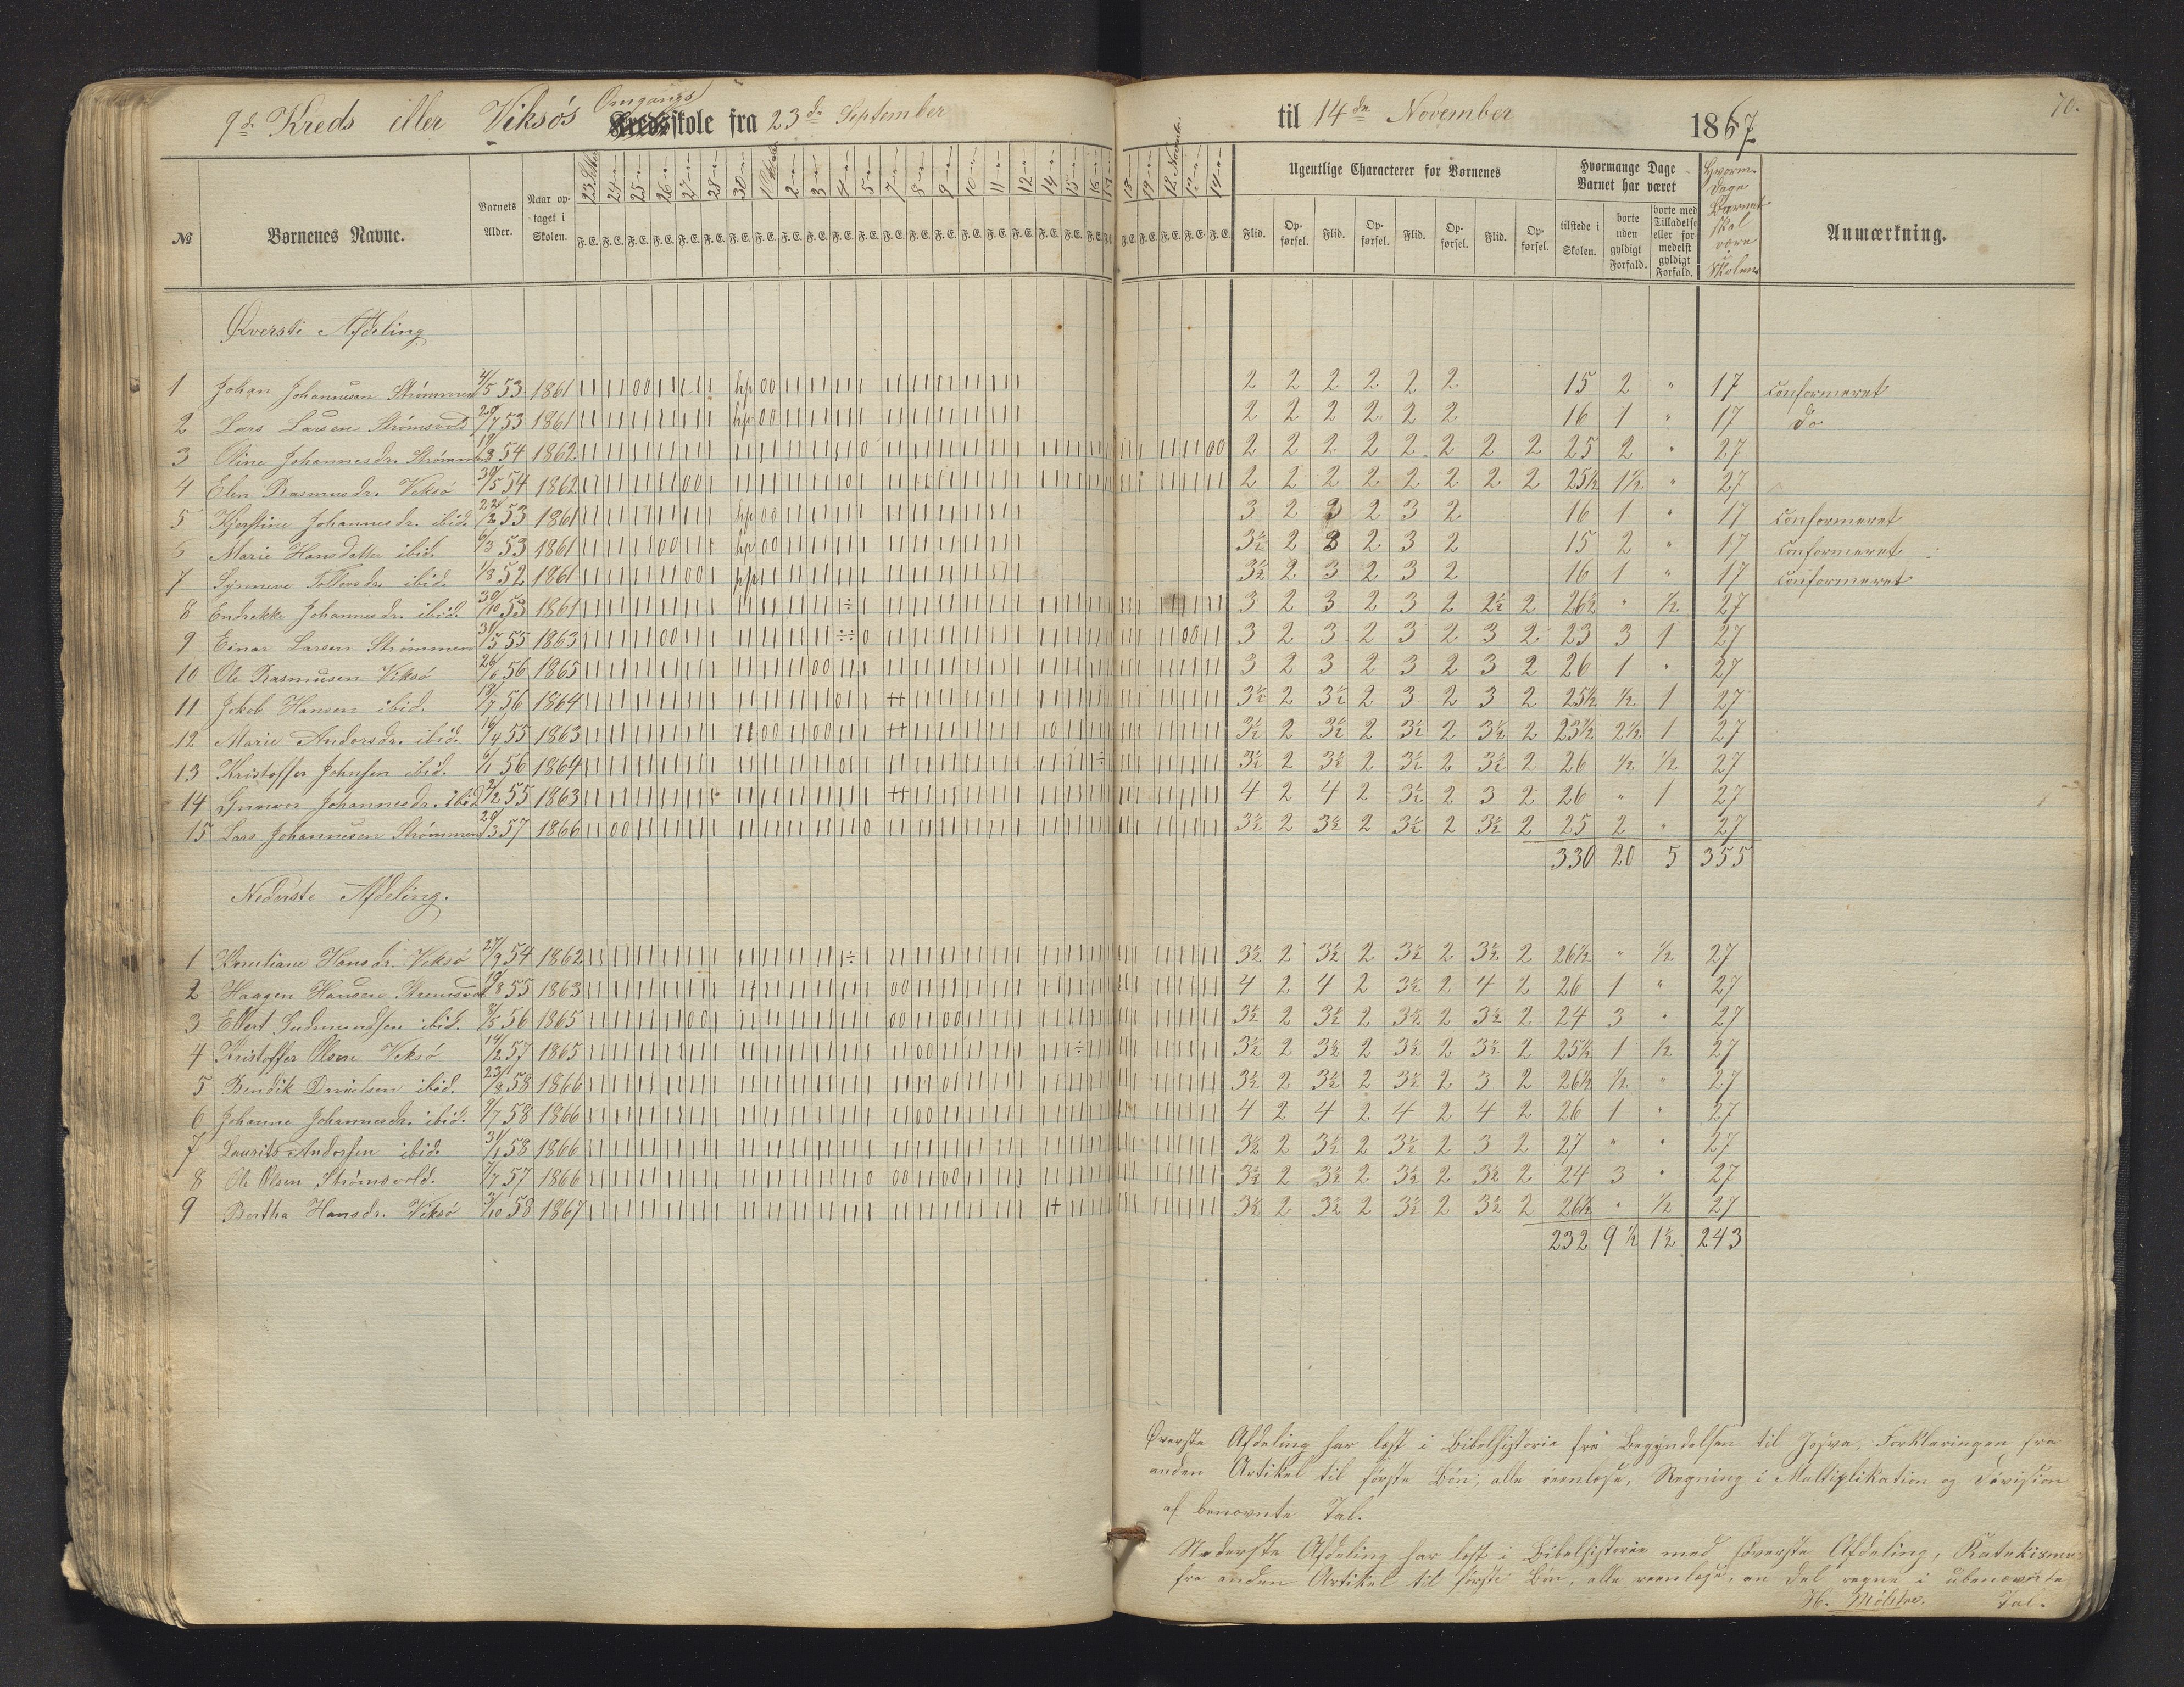 9de Kreds eller Viksøs Omgangsskole fra 23de September til 14de November 1867
70.
№ Børnenes Navne. Barnets Alder. Naar optaget i Skolen. 23 Septbr 24 25 26 27 28 30 1 Oktober 2 3 4 5 7 8 9 10 11 12 14 15 16 17 18 19 12 Novembr. 13 14 Ugentlige Characterer for Børnenes Hvormange Dage Barnet har været Hvorm. Dage Barnet skal være i Skolen Anmærkning.
F. E. F. E. F. E. F. E. F. E. F. E. F. E. F. E. F. E. F. E. F. E. F. E. F. E. F. E. F. E. F. E. F. E. F. E. F. E. F. E. F. E. F. E. F. E. F. E. F. E. F. E. F. E. Flid. Opførsel. Flid. Opførsel. Flid. Opførsel. Flid. Opførsel. tilstede i Skolen. borte uden gyldigt Forfald. borte med Tilladelse eller formedelst gyldigt Forfald.
Øverste Afdeling
1 Johan Johannesen Strømmen 4/5 53 1861 2 2 2 2 2 2 15 2 " 17 Conformeret
2 Lars Larsen Strømsvold 29/7 53 1861 2 2 2 2 2 2 16 1 " 17 Do
3 Oline Johannesdr. Strømmen 19/3 54 1862 2 2 2 2 2 2 2 2 25 2 " 27
4 Elen Rasmusdr. Viksø 30/5 54 1862 2 2 2 2 2 2 2 2 25½ 1½ " 27
5 Kjerstine Johannesdr. ibid. 22/2 53 1861 3 2 3 2 3 2 16 1 " 17 Conformeret
6 Marie Hansdatter ibid. 6/3 53 1861 3½ 2 3 2 3 2 15 2 " 17 Conformeret
7 Synneve Tollevsdr. ibid. 1/8 52 1861 3½ 2 3 2 3 2 16 1 " 17 Conformeret
8 Endrekke Johannesdr. ibid. 30/10 53 1861 3 2 3 2 3 2 2½ 2 26½ " ½ 27
9 Einar Larsen Strømmen 31/5 55 1863 3 2 3 2 3 2 3 2 23 3 1 27
10 Ole Rasmusen Viksø 26/6 56 1865 3 2 3 2 3 2 3 2 26 1 " 27
11 Jakob Hansen ibid. 18/7 56 1864 3½ 2 3½ 2 3 2 3 2 25½ ½ 1 27
12 Marie Andersdr. ibid. 16/4 55 1863 3½ 2 3½ 2 3½ 2 3½ 2 23½ 2½ 1 27
13 Kristoffer Johnsen ibid. 6/1 56 1864 3½ 2 3½ 2 3½ 2 3½ 2 26 ½ ½ 27
14 Gunnvor Johannesdr. ibid 7/2 55 1863 4 2 4 2 3½ 2 3 2 26 " 1 27
15 Lars Johannesen Strømmen 20/3 57 1866 3½ 2 3½ 2 3½ 2 3½ 2 25 2 " 27
330 20 5 355
Nederste Afdeling.
1 Hansdr. Viksø 27/9 54 1862 3½ 2 3½ 2 3½ 2 3½ 2 26½ " ½ 27
2 Haagen Hansen 19/8 55 1863 4 2 4 2 3½ 2 4 2 26 1 " 27
3 Ellert Gudmundsen ibid. 8/5 56 1865 3½ 2 3½ 2 3½ 2 3½ 2 24 3 " 27
4 Kristoffer Olsen Viksø 14/2 57 1865 3½ 2 3½ 2 3½ 2 3½ 2 25½ 1 ½ 27
5 Bendik Danielsen ibid. 23/8 58 1866 3½ 2 3½ 2 3½ 2 3 2 26½ ½ " 27
6 Johanne Johannesdr. ibid. 8/7 58 1866 4 2 4 2 4 2 4 2 26 1 " 27
7 Laurits Andersen ibid. 31/1 58 1866 3½ 2 3½ 2 3½ 2 3 2 27 " " 27
8 Ole Olsen Strømsvold. 7/7 57 1866 3½ 2 3½ 2 3½ 2 3½ 2 24 3 " 27
9 Bertha Hansdr. Viksø 3/10 58 1867 3½ 2 3½ 2 3½ 2 3½ 2 26½ " ½ 27
232 9½ 1½ 243
Øverste Afdeling har læst i Bibelhistorie fra Begyndelsen til Josva, Forklaringen fra
anden Artikel til første Bøn, alle reenlæse, Regning i Multiplikation og Division
af benævnte Tal.
Nederste Afdeling har læst i Bibelhistorie med Øverste Afdeling, Katekismu
fra anden Artikel til første Bøn, alle reenlæse, en Del regne i ubenævnte
H. Mölster. Tal.